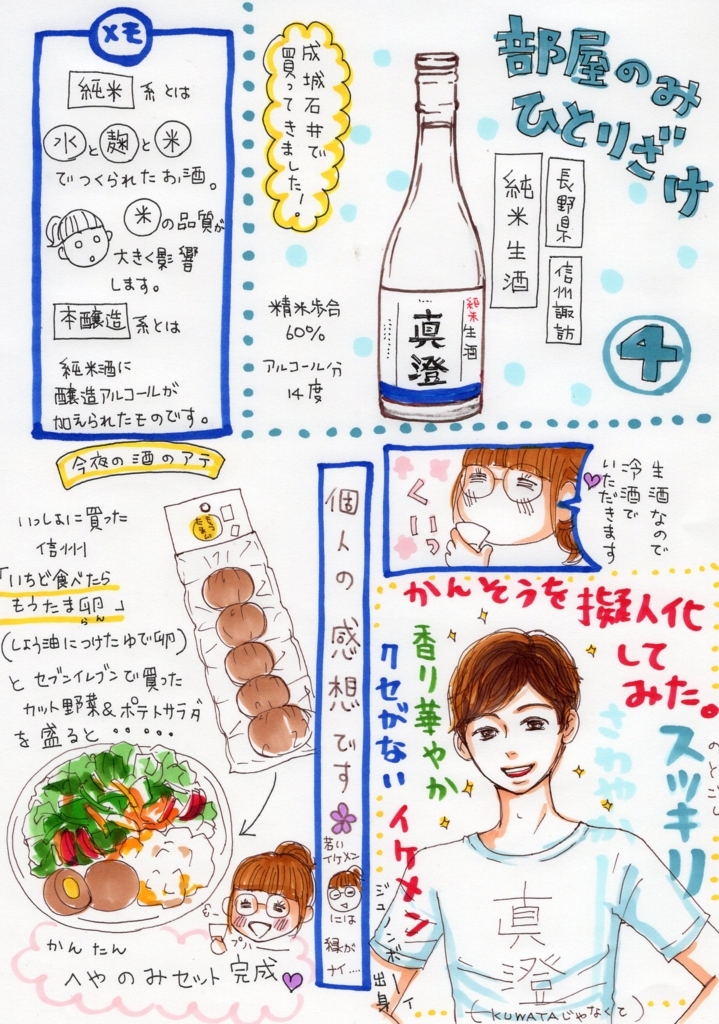 部屋のみ
ひとりざけ
長野県
信州諏訪
純米生酒
4
成城石井で
買ってきました!
純米
生酒
真澄
精米歩合
60%
アルコール分
14度
メモ
純米系とは
水と麹と米
でつくられたお酒。
米の品質が
大きく影響
します。
本醸造系とは
純米酒に
醸造アルコールが
加えられたものです。
生酒なので
冷酒で
いただきます
くいっ
今夜の酒のアテ
いっしょに買った
信州
「いちど食べたら
もうたま卵」
らん
(しょう油につけたゆで卵)
とセブンイレブンで買った
カット野菜&ポテトサラダ
を盛ると・・・・・・
プハー
かんたん
へやのみセット完成
個人の感想です
若い
イケメン
には
縁が
ナイ….
かんそうを擬人化
してみた。
のどごし
スッキリ
さわやか
香り華やか
クセがない
イケメン
ジュノンボーイ
出身
真澄
(KUWATAじゃなくて)